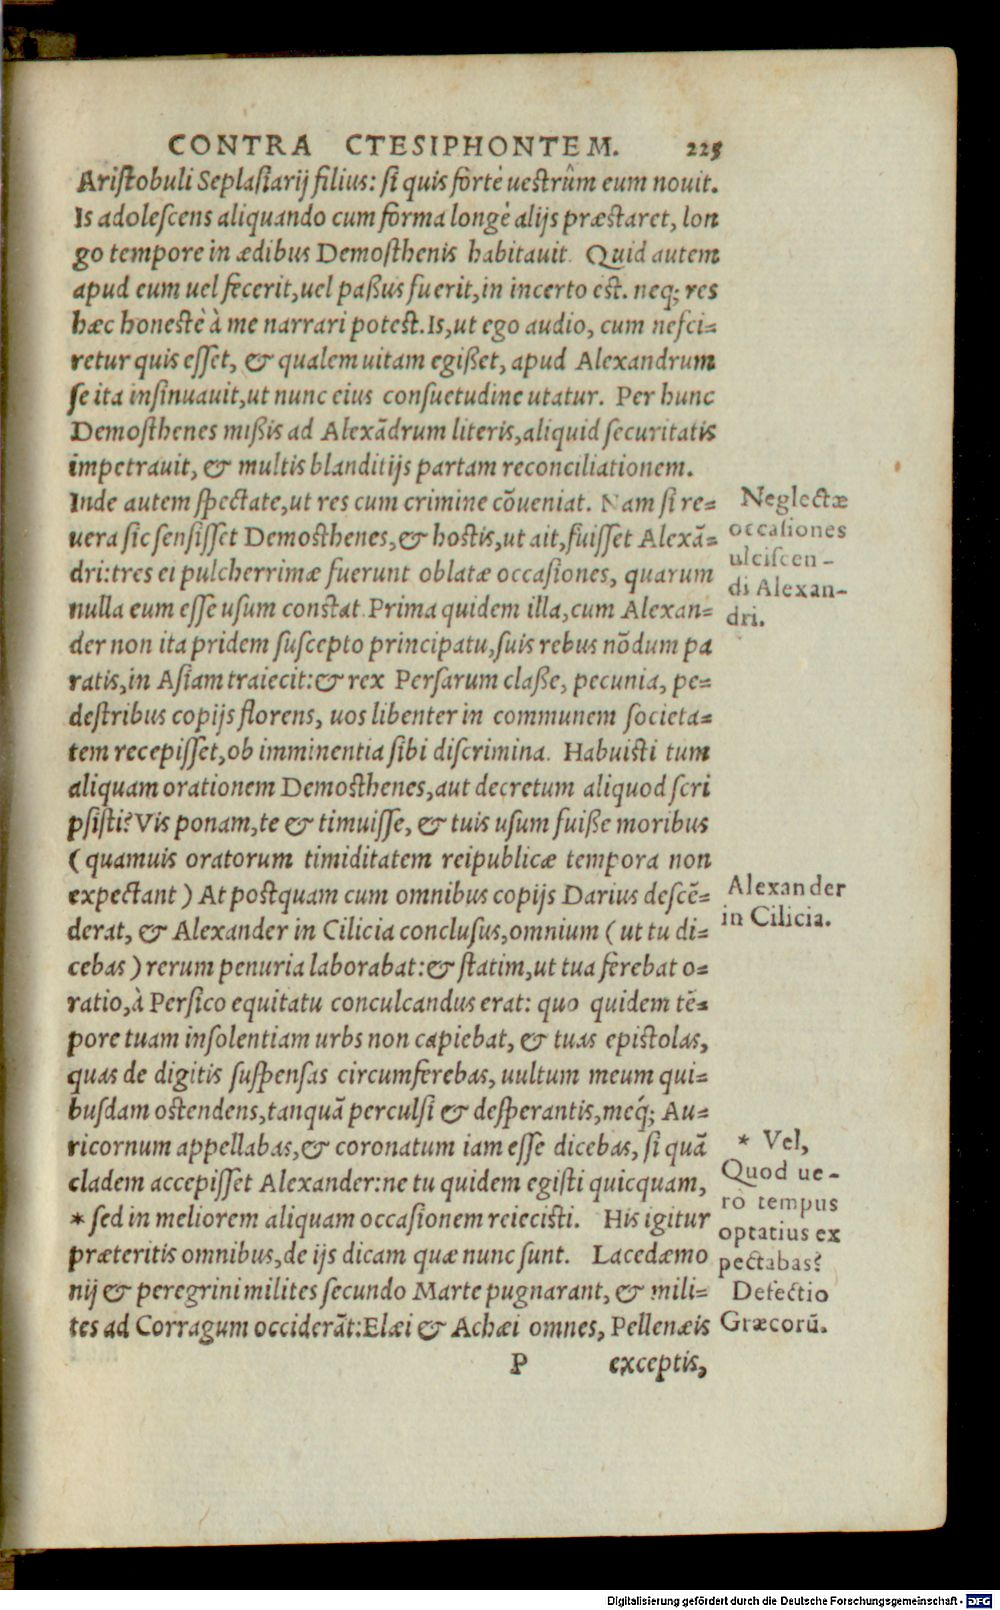 CONTRA CTESIPHONTEM. 225
Aristobuli Seplasiarij filius: si quis fortè uestrûm eum nouit.
Is adolescens aliquando cum forma longè alijs præstaret, lon
go tempore in ædibus Demosthenis habitauit. Quid autem
apud eum uel fecerit, uel paßus fuerit, in incerto est. neq; res
hæc honestè à me narrari potest. Is, ut ego audio, cum nesci=
retur quis esset, & qualem uitam egißet, apud Alexandrum
se ita insinuauit, ut nunc eius consuetudine utatur. Per hunc
Demosthenes mißis ad Alexãdrum literis, aliquid securitatis
impetrauit, & multis blanditijs partam reconciliationem.
Inde autem spectate, ut res cum crimine cõueniat. Nam si re=
uera sic sensisset Demosthenes, & hostis, ut ait, fuisset Alexã=
dri: tres ei pulcherrimæ fuerunt oblatæ occasiones, quarum
nulla eum esse usum constat. Prima quidem illa, cum Alexan=
der non ita pridem suscepto principatu, suis rebus nõdum pa
ratis, in Asiam traiecit: & rex Persarum claße, pecunia, pe=
destribus copijs florens, uos libenter in communem societa=
tem recepisset, ob imminentia sibi discrimina. Habuisti tum
aliquam orationem Demosthenes, aut decretum aliquod scri
psisti? Vis ponam, te & timuisse, & tuis usum fuiße moribus
(quamuis oratorum timiditatem reipublicæ tempora non
expectant) At postquam cum omnibus copijs Darius descẽ=
derat, & Alexander in Cilicia conclusus, omnium (ut tu di=
cebas) rerum penuria laborabat: & statim, ut tua ferebat o=
ratio, à Persico equitatu conculcandus erat: quo quidem tẽ=
pore tuam insolentiam urbs non capiebat, & tuas epistolas,
quas de digitis suspensas circumferebas, uultum meum qui=
busdam ostendens, tanquã perculsi & desperantis, meq́; Au=
ricornum appellabas, & coronatum iam esse dicebas, si quã
cladem accepisset Alexander: ne tu quidem egisti quicquam,
* sed in meliorem aliquam occasionem reiecisti. His igitur
præteritis omnibus, de ijs dicam quæ nunc sunt. Lacedæmo
nij & peregrini milites secundo Marte pugnarant, & mili=
tes ad Corragum occiderãt: Elæi & Achæi omnes, Pellenæis
P exceptis,
Neglectæ
occasiones
ulciscen-
di Alexan-
dri.
Alexander
in Cilicia.
* Vel,
Quod ue-
rò tempus
optatius ex
pectabas?
Defectio
Græcorũ.
Digitalisierung gefördert durch die Deutsche Forschungsgemeinschaft - DFG